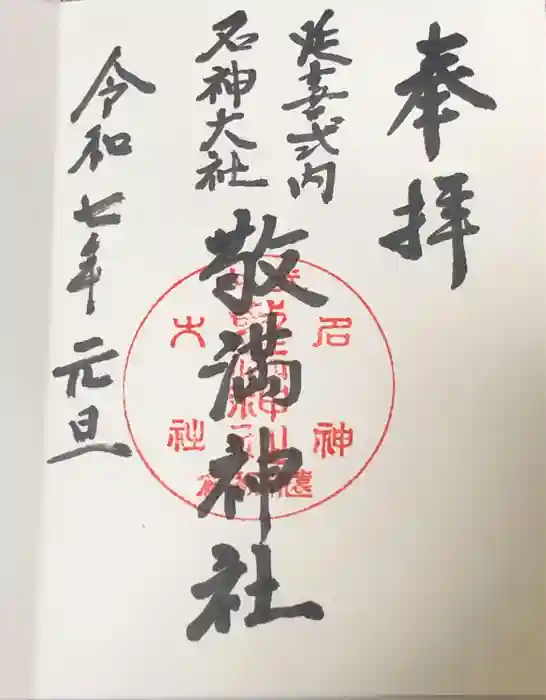 奉拝
延喜式内
名神大社
敬満神社
名神
大社
令和七年元旦